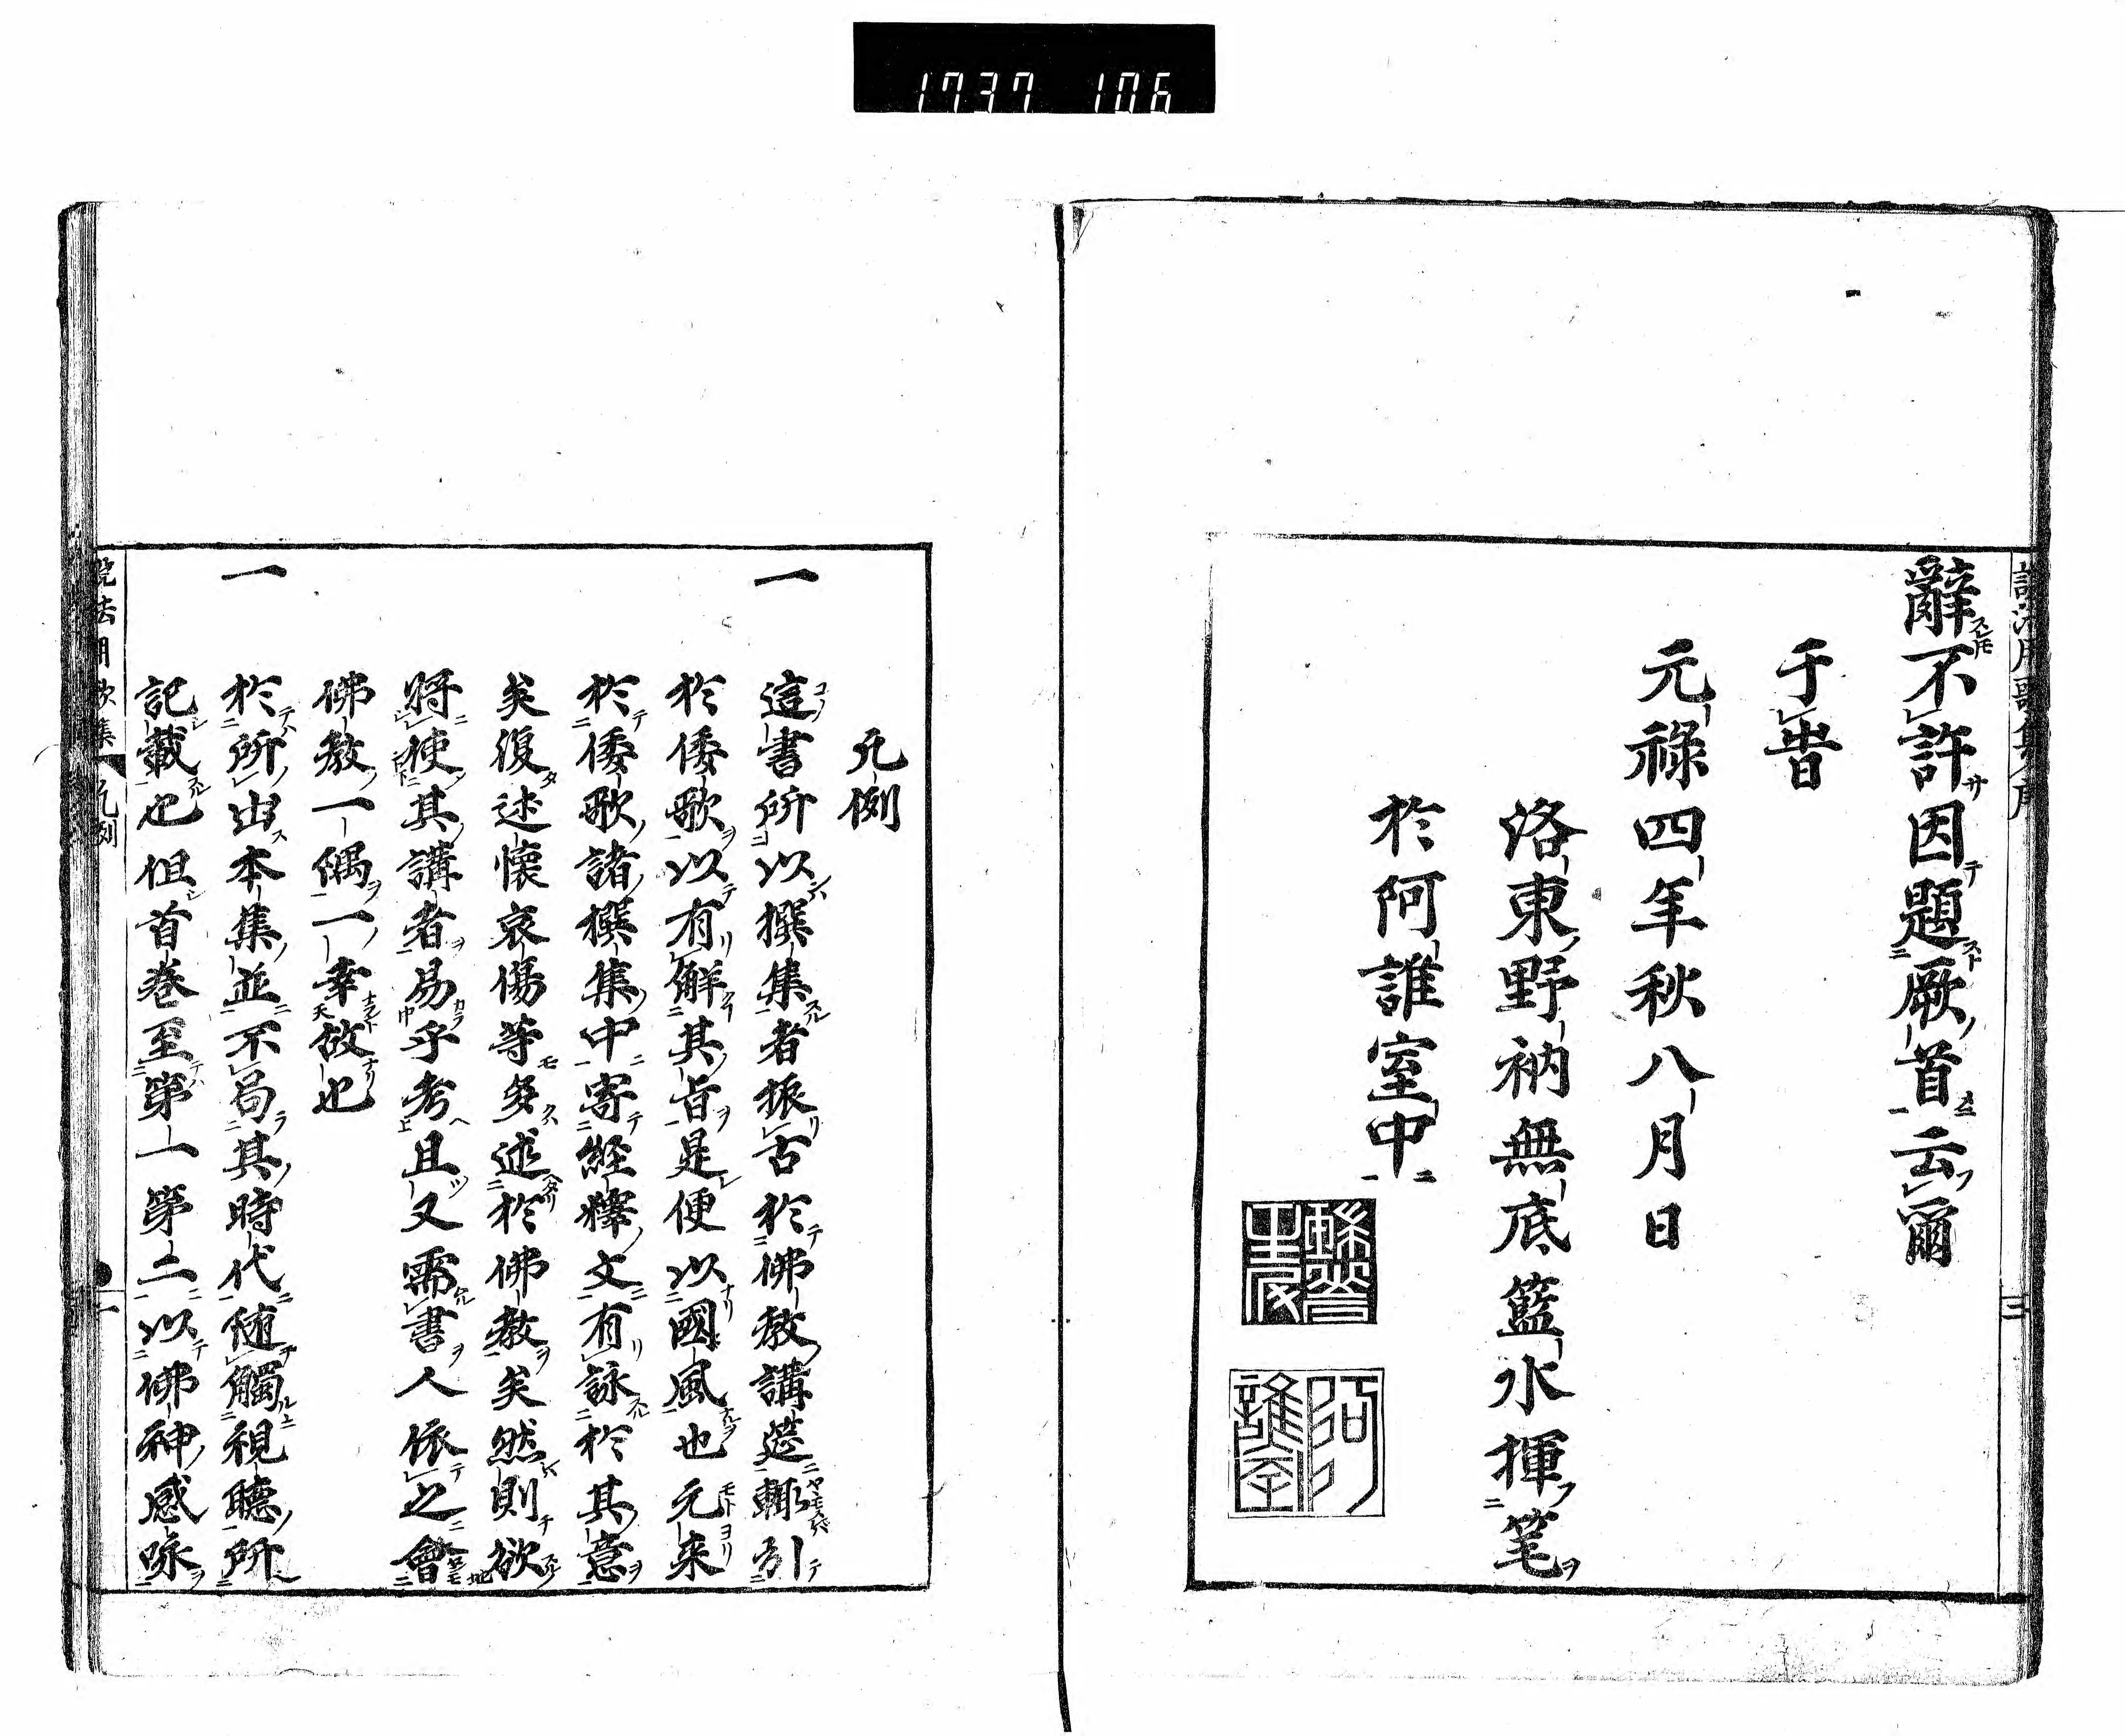 1737 106
辭不許因題厥首云爾
于旹
元祿四年秋八月日
洛東野衲無底籃水揮筆
於阿誰室中
凡例
一 這書所以撰集者振古於佛教講莚輙引
於倭歌以有解其旨是便以國風也元來
於倭歌諸撰集中寄経釋文有詠於其意
矣復述懷哀傷等多述於佛教矣然則欲
將使其講者易乎考且又需書人依之會
佛教一偶一幸故也
一 於所出本集並不局其時代隨觸視聽所
記載也但首卷至第一第二以佛神感咏